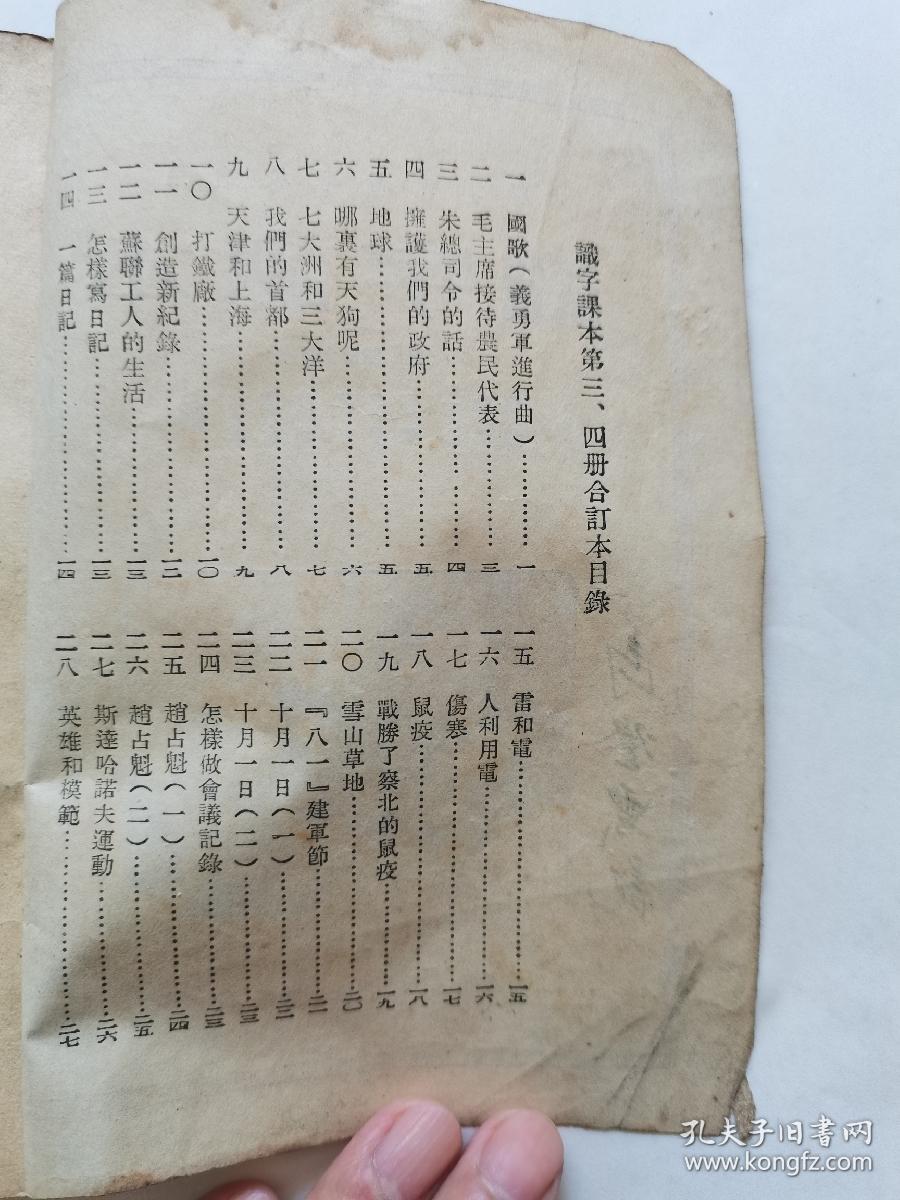 識字課本第三、四册合訂本目錄
一 國歌(義勇軍進行曲)…………一
二 毛主席接待農民代表…………三
三 朱總司令的話…………四
四 擁護我們的政府…………五
五 地球…………五
六 哪裏有天狗呢…………六
七 七大洲和三大洋…………七
八 我們的首都…………八
九 天津和上海…………九
一〇 打鐵廠…………一〇
一一 創造新紀錄…………一二
一二 蘇聯工人的生活…………一三
一三 怎樣寫日記…………一三
一四 一篇日記…………一四
一五 雷和電…………一五
一六 人利用電…………一六
一七 傷寒…………一七
一八 鼠疫…………一八
一九 戰勝了察北的鼠疫…………一九
二〇 雪山草地…………二〇
二一 『八一』建軍節…………二一
二二 十月一日(一)…………二二
二三 十月一日(二)…………二三
二四 怎樣做會議記錄…………二三
二五 趙占魁(一)…………二四
二六 趙占魁(二)…………二五
二七 斯達哈諾夫運動…………二六
二八 英雄和模範…………二七
孔夫子旧书网
www.kongfz.com